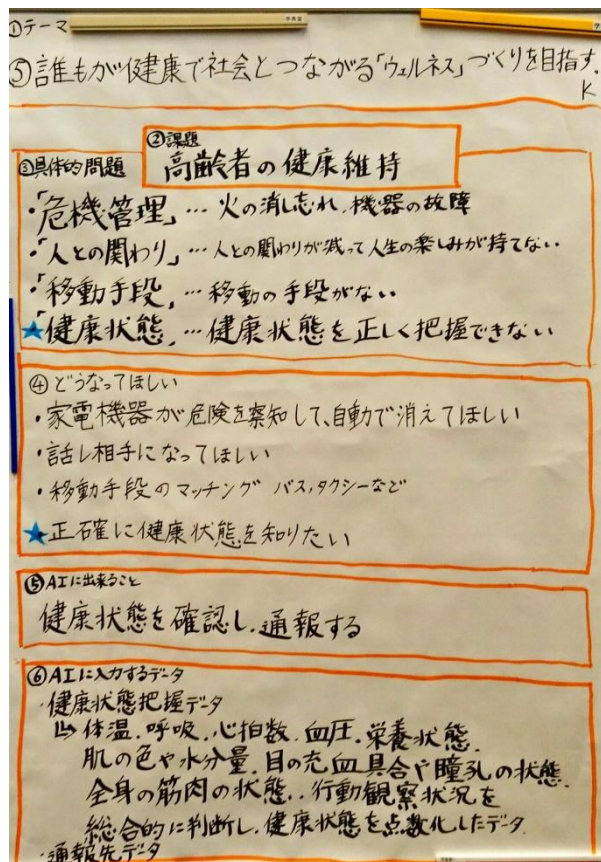 ①テーマ
⑤誰もが健康で社会とつながる「ウェルネス」づくりを目指す.
K
②課題
高齢者の健康維持
③具体的問題
・「危機管理」… 火の消し忘れ、機器の故障
・「人との関わり」… 人との関わりが減って人生の楽しみが持てない
・「移動手段」… 移動の手段がない
★「健康状態」… 健康状態を正しく把握できない
④どうなってほしい
・家電機器が危険を察知して、自動で消えてほしい
・話し相手になってほしい
・移動手段のマッチング バス,タクシーなど
★正確に健康状態を知りたい
⑤AIに出来ること
健康状態を確認し、通報する
⑥AIに入力するデータ
・健康状態把握データ
↳体温、呼吸、心拍数、血圧、栄養状態、
肌の色や水分量、目の充血具合や瞳孔の状態、
全身の筋肉の状態、、行動観察状況を
総合的に判断し、健康状態を点数化したデータ
・通報先データ